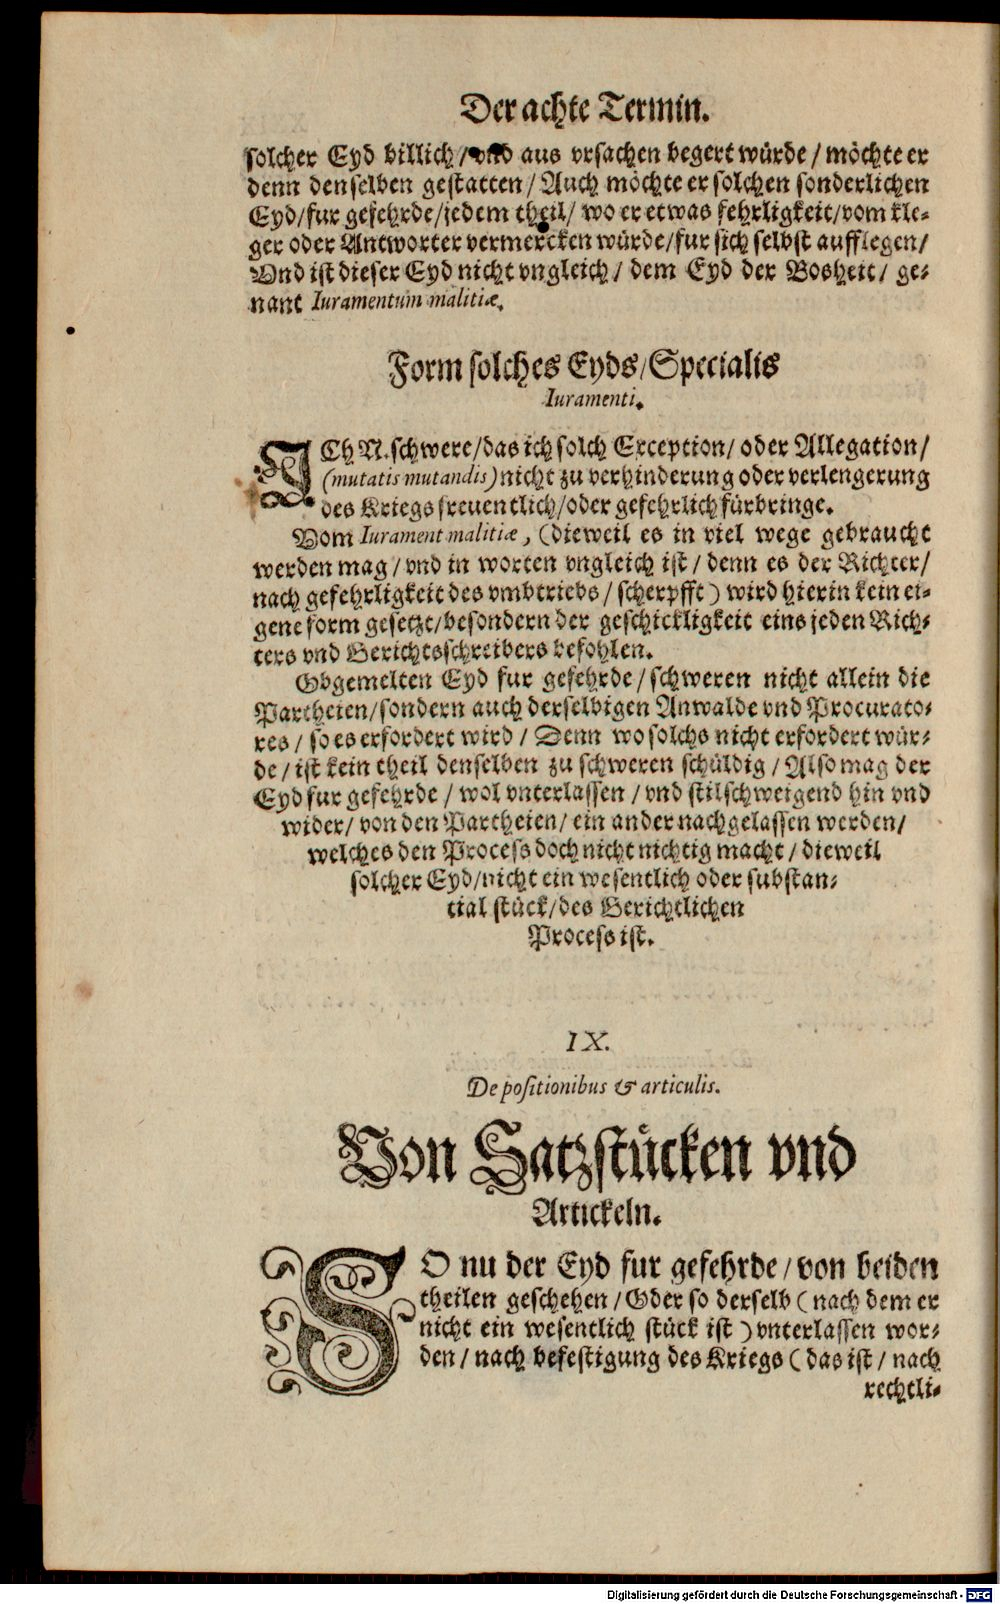 Der achte Termin.
solcher Eyd billich / vnd aus vrsachen begert würde / möchte er
denn denselben gestatten / Auch möchte er solchen sonderlichen
Eyd / fur gefehrde / jedem theil / wo er etwas fehrligkeit / vom kle-
ger oder Antworter vermercken würde / fur sich selbst aufflegen /
Vnd ist dieser Eyd nicht vngleich / dem Eyd der Bosheit / ge-
nant Iuramentum malitiæ.
Form solches Eyds / Specialis
Iuramenti.
ICh N. schwere / das ich solch Exception / oder Allegation /
(mutatis mutandis) nicht zu verhinderung oder verlengerung
des Kriegs freuentlich / oder gefehrlich fürbringe.
Vom Iurament malitiæ, (dieweil es in viel wege gebraucht
werden mag / vnd in worten vngleich ist / denn es der Richter /
nach gefehrligkeit des vmbtriebs / scherpfft) wird hierin kein ei-
gene form gesetzt / besondern der geschickligkeit eins jeden Rich-
ters vnd Gerichtsschreibers befohlen.
Obgemelten Eyd fur gefehrde / schweren nicht allein die
Partheien / sondern auch derselbigen Anwalde vnd Procurato-
res / so es erfordert wird / Denn wo solchs nicht erfordert wür-
de / ist kein theil denselben zu schweren schüldig / Also mag der
Eyd fur gefehrde / wol vnterlassen / vnd stilschweigend hin vnd
wider / von den Partheien / ein ander nachgelassen werden /
welches den Process doch nicht nichtig macht / dieweil
solcher Eyd / nicht ein wesentlich oder substan-
tial stück / des Gerichtlichen
Process ist.
IX.
De positionibus & articulis.
Von Satzstücken vnd
Artickeln.
SO nu der Eyd fur gefehrde / von beiden
theilen geschehen / Oder so derselb (nach dem er
nicht ein wesentlich stück ist) vnterlassen wor-
den / nach befestigung des Kriegs (das ist / nach
rechtli-
Digitalisierung gefördert durch die Deutsche Forschungsgemeinschaft - DFG